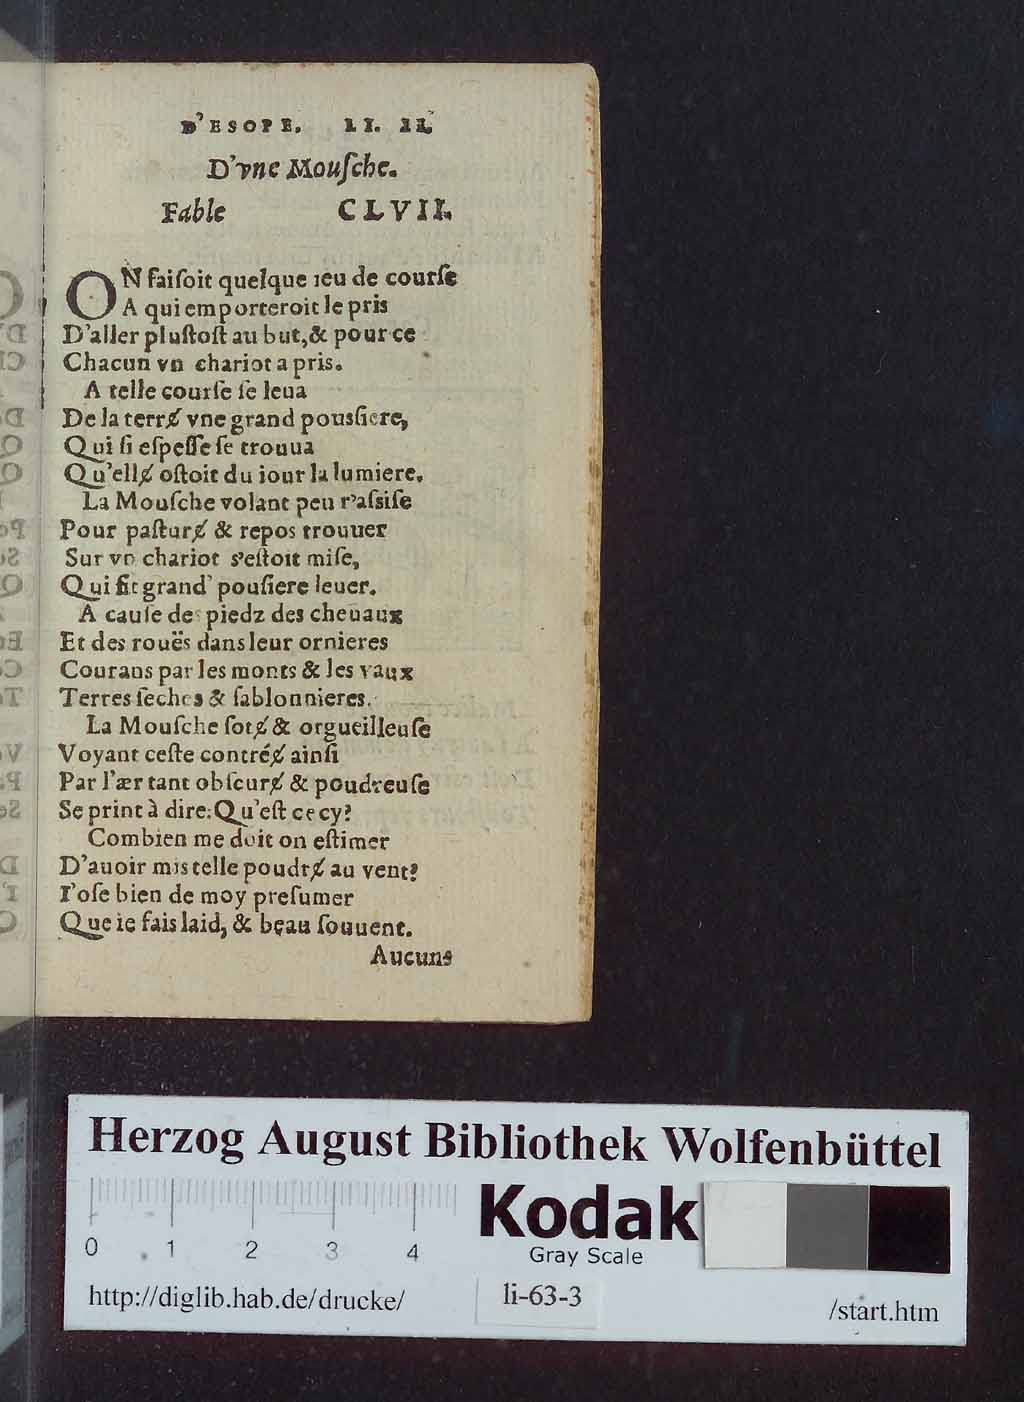 D'ESOPE. LI. II.
D'vne Mouſche.
Fable CLVII.
ON faiſoit quelque ieu de courſe
A qui emporteroit le pris
D'aller pluſtoſt au but, & pour ce
Chacun vn chariot a pris.
A telle courſe ſe leua
De la terrɇ vne grand pousſiere,
Qui ſi eſpeſſe ſe trouua
Qu'ellɇ oſtoit du iour la lumiere.
La Mouſche volant peu r'aſsiſe
Pour paſturɇ & repos trouuer
Sur vn chariot s'eſtoit miſe,
Qui fit grand' pouſiere leuer.
A cauſe des piedz des cheuaux
Et des rouës dans leur ornieres
Courans par les monts & les vaux
Terres ſeches & ſablonnieres.
La Mouſche ſotɇ & orgueilleuſe
Voyant ceſte contréɇ ainſi
Par l'ær tant obſcurɇ & poudreuſe
Se print à dire: Qu'eſt ce cy?
Combien me doit on eſtimer
D'auoir mis telle poudrɇ au vent?
I'oſe bien de moy preſumer
Que ie fais laid, & beau ſouuent.
Aucuns
Herzog August Bibliothek Wolfenbüttel
Kodak
Gray Scale
0 1 2 3 4
http://diglib.hab.de/drucke/ li-63-3 /start.htm